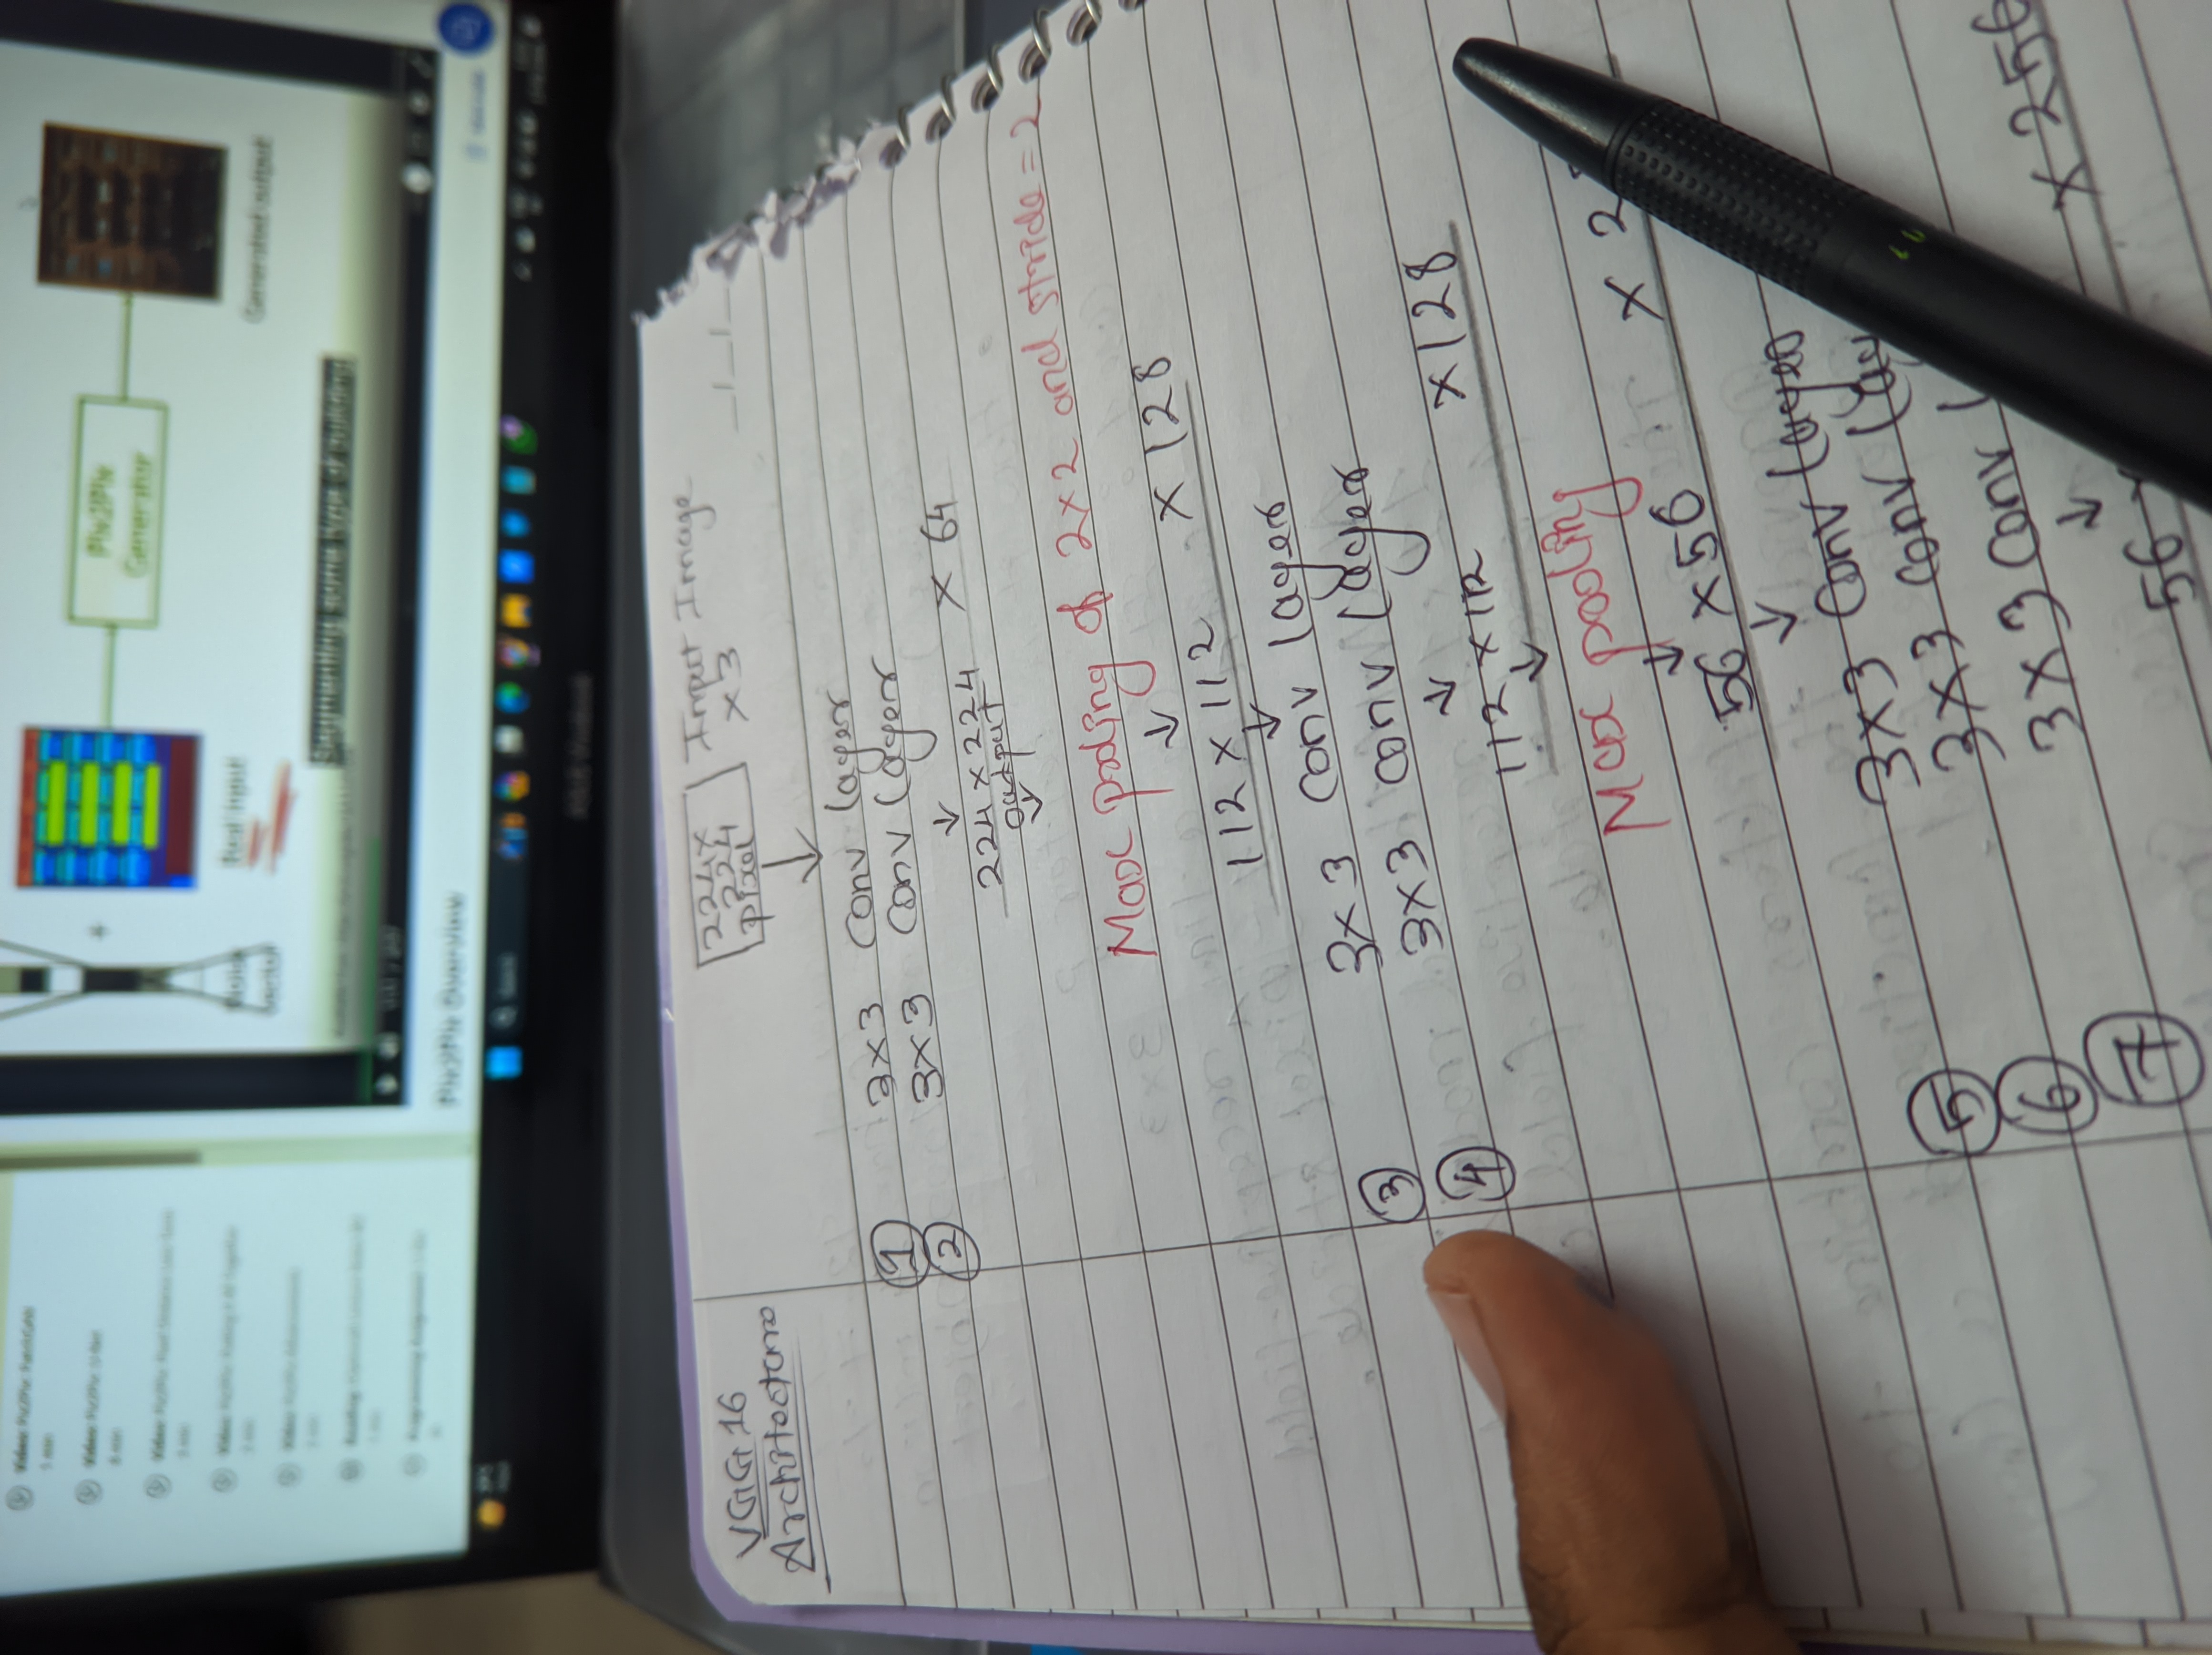 VGG16
Architecture
224x
224
pixel
Input Image
x3
① 3x3 conv layer
② 3x3 conv layer
224x224 x 64
output
Max pooling of 2x2 and stride=2
112x112 x 128
③ 3x3 conv layer
④ 3x3 conv layer
112x112 x 128
Max pooling
56x56 x 2
⑤ 3x3 conv layer
⑥ 3x3 conv lay
⑦ 3x3 conv l
56 x 256
Real input
Pix2Pix
Generator
Generated output
Pix2Pix Overview